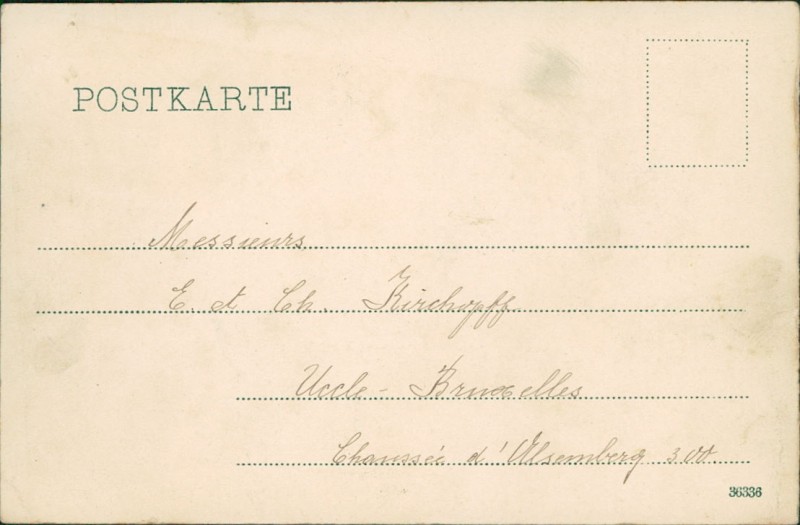 POSTKARTE
Messieurs
E. et Ch. Kirchopff
Uccle - Bruxelles
Chaussée d'Alsemberg 300
36336